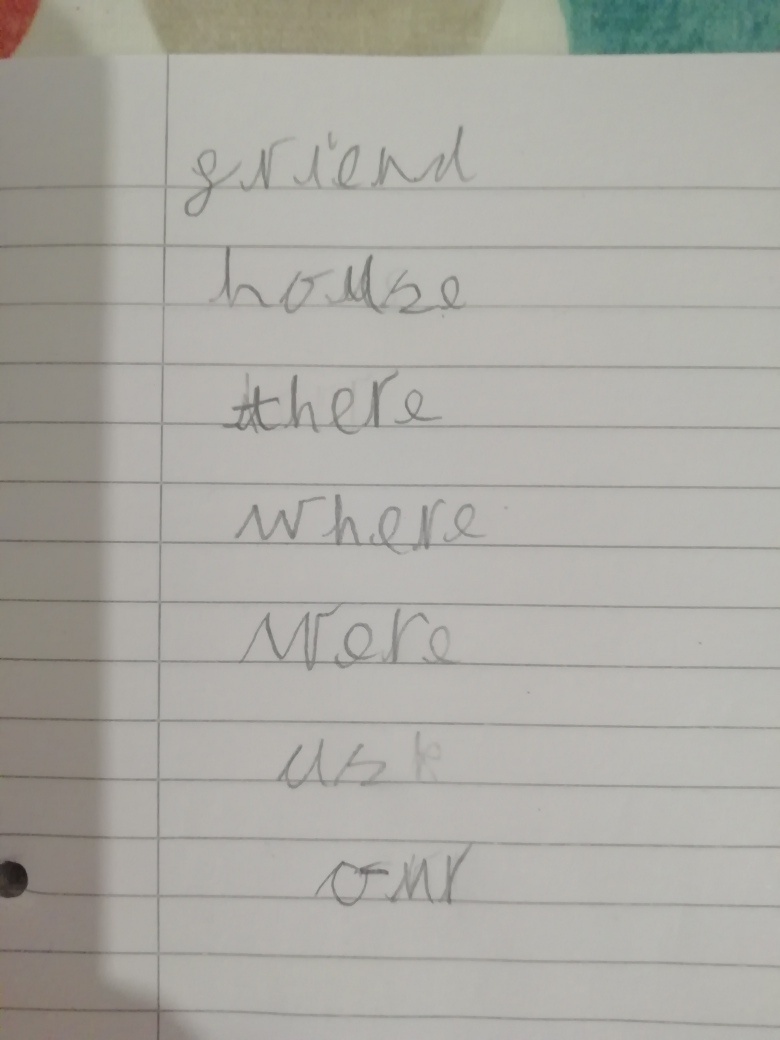 friend
house
there
where
were
ask
our